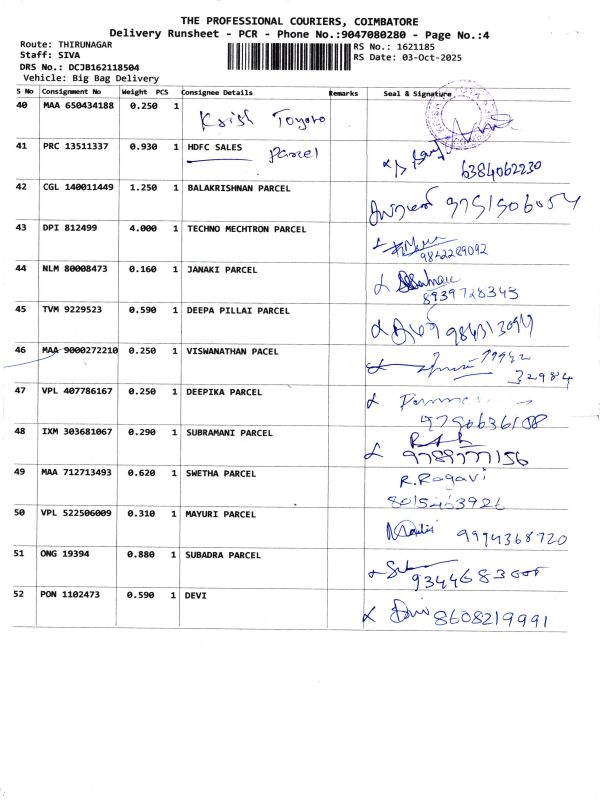 THE PROFESSIONAL COURIERS, COIMBATORE
Delivery Runsheet - PCR - Phone No.:9047080280 - Page No.:4
Route: THIRUNAGAR RS No.: 1621185
Staff: SIVA RS Date: 03-Oct-2025
DRS No.: DCJB162118504
Vehicle: Big Bag Delivery
S No Consignment No Weight PCS Consignee Details Remarks Seal & Signature
40 MAA 650434188 0.250 1 Krish Toyoto
41 PRC 13511337 0.930 1 HDFC SALES Parcel 6384062230
42 CGL 140011449 1.250 1 BALAKRISHNAN PARCEL 9751906054
43 DPI 812499 4.000 1 TECHNO MECHTRON PARCEL 9842289092
44 NLM 80008473 0.160 1 JANAKI PARCEL 8939728343
45 TVM 9229523 0.590 1 DEEPA PILLAI PARCEL
46 MAA 9000272210 0.250 1 VISWANATHAN PACEL 32984
47 VPL 407786167 0.250 1 DEEPIKA PARCEL 9790636108
48 IXM 303681067 0.290 1 SUBRAMANI PARCEL 9789777156
49 MAA 712713493 0.620 1 SWETHA PARCEL R.Ragavi
50 VPL 522506009 0.310 1 MAYURI PARCEL 9994368720
51 ONG 19394 0.880 1 SUBADRA PARCEL
52 PON 1102473 0.590 1 DEVI Devi 8608219991